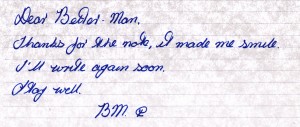 Dear Better-Man,
Thanks for the note, it made me smile.
I'll write again soon.
Stay well.
B.M.